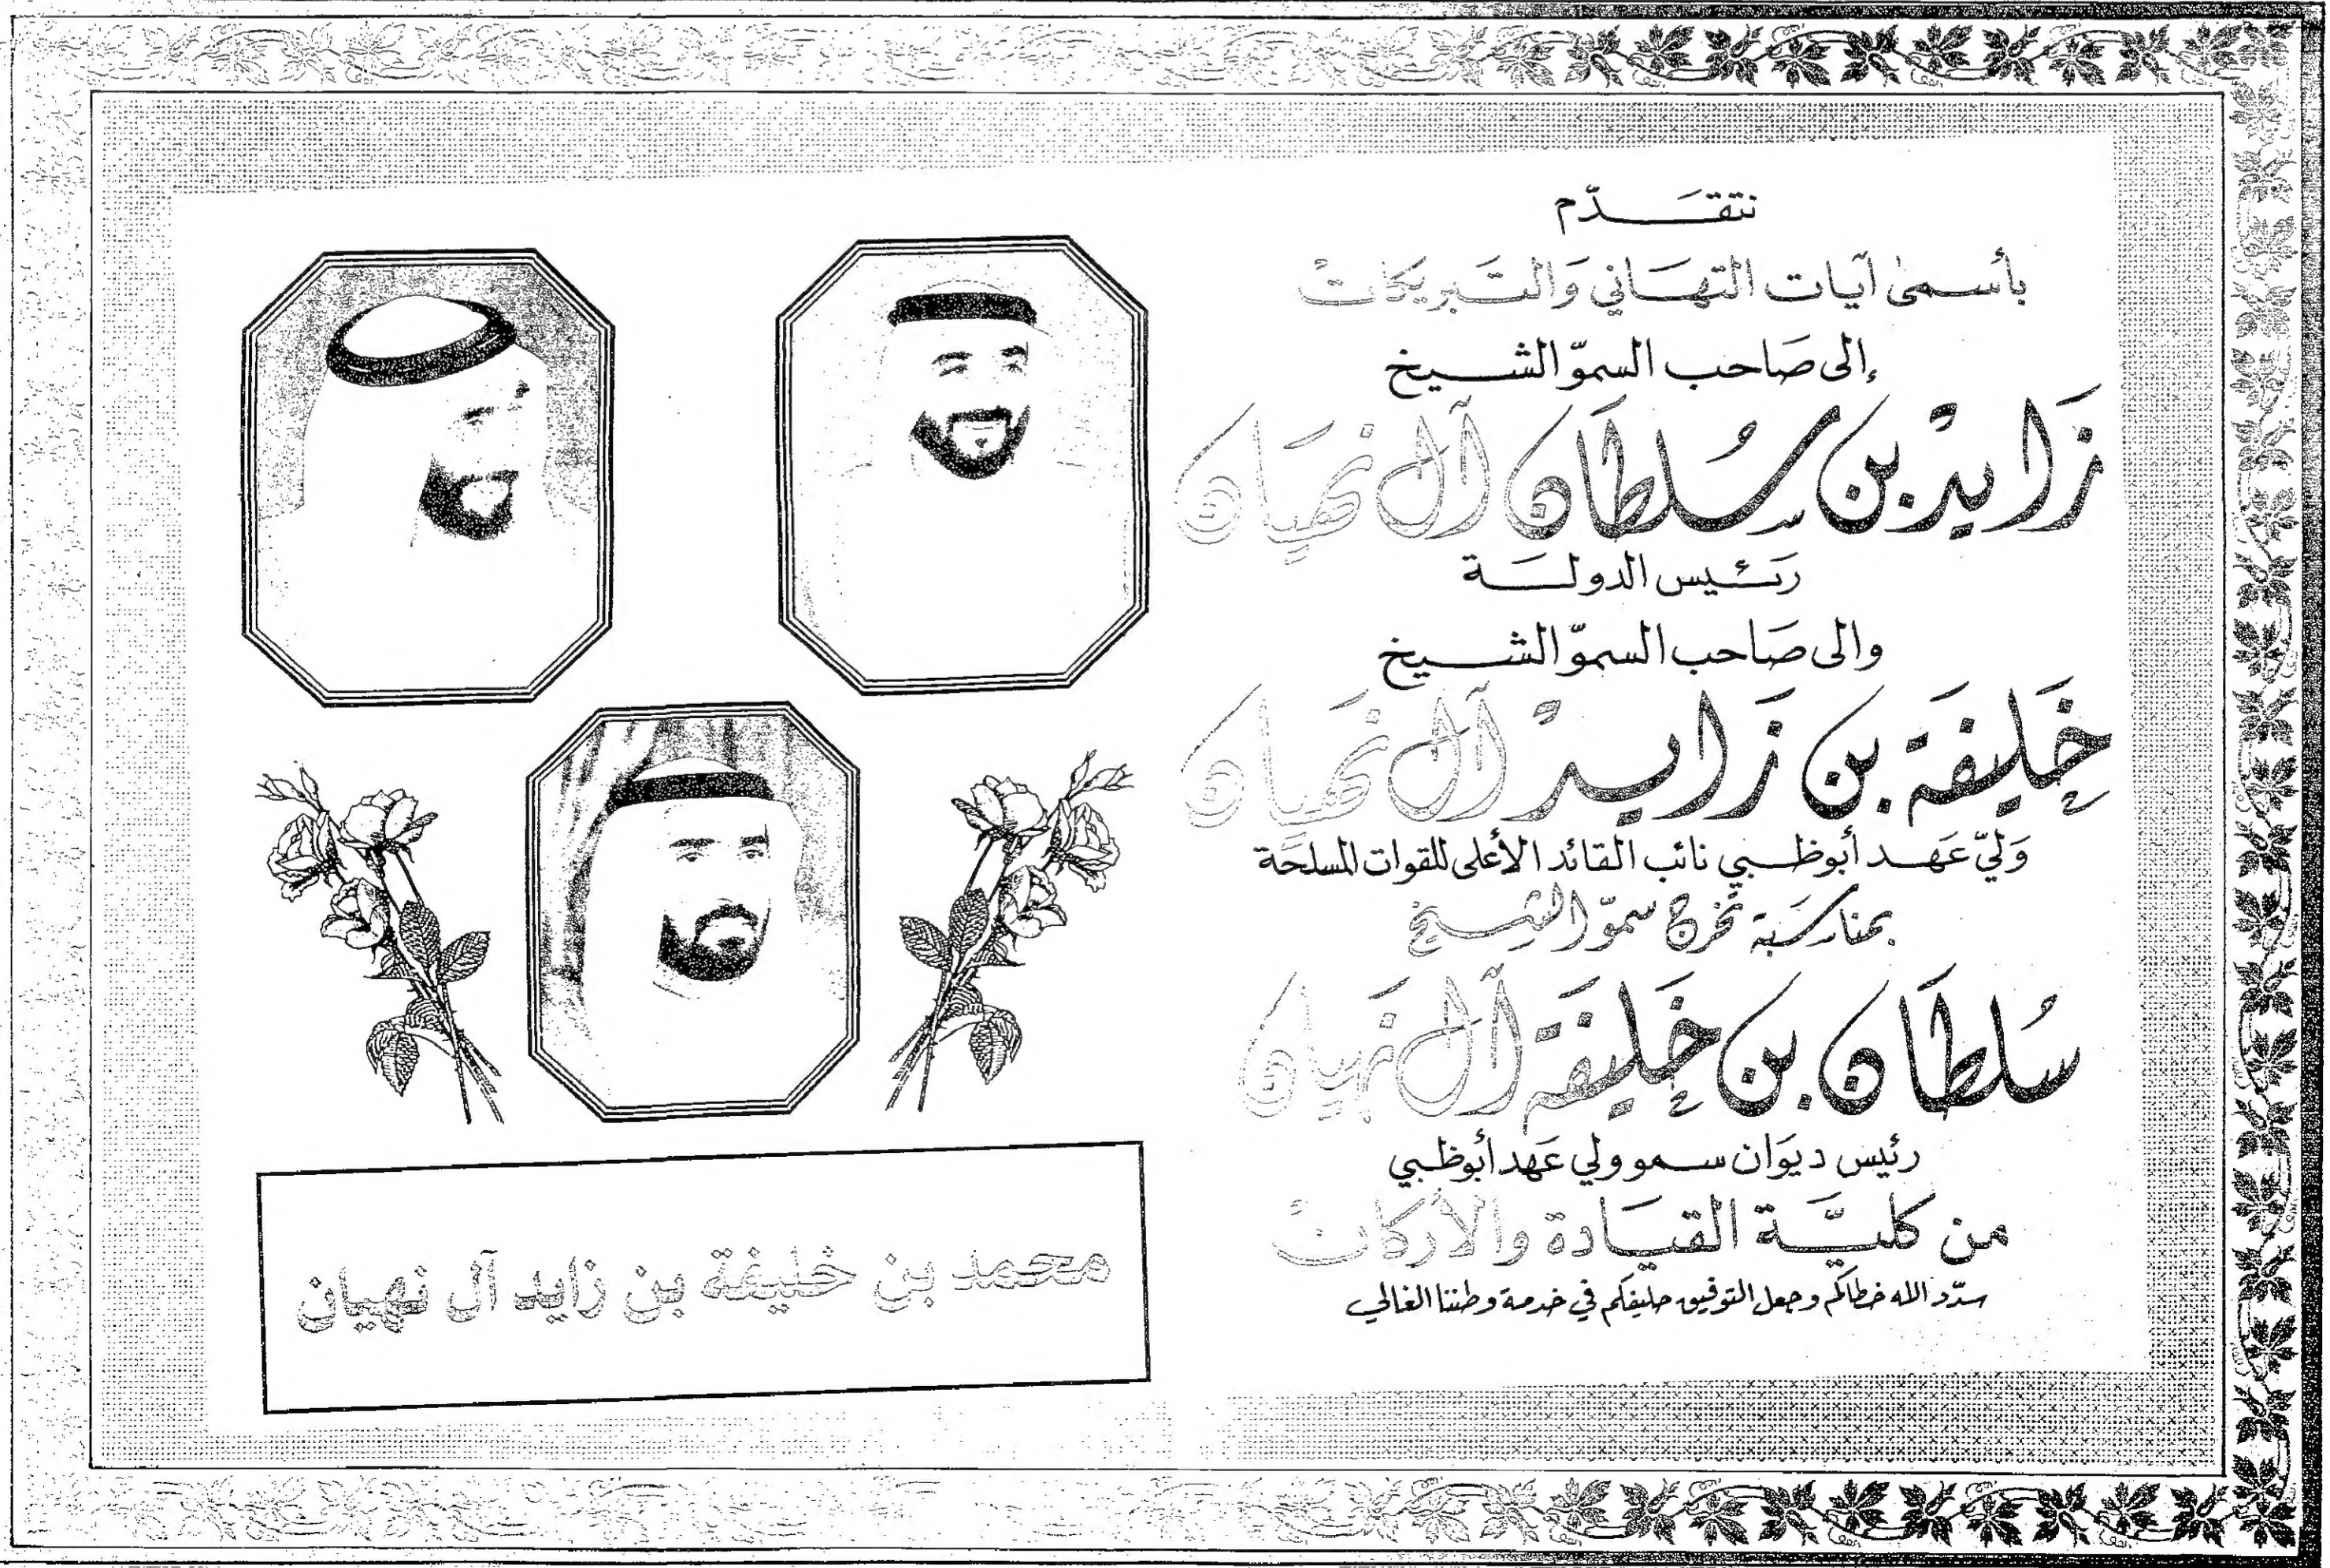 نتقدّم
بأسمى آيات التهاني والتبريكات
إلى صَاحب السموّ الشيخ
زَايد بن سُلطَان آل نهيَان
رَئيس الدولَة
والى صَاحب السموّ الشيخ
خَليفَة بن زَايد آل نهيَان
وَليّ عَهد أبوظبي نائب القائد الأعلى للقوات المسلحَة
بمناسَبة تخرج سموّ الشيخ
سُلطَان بن خَليفَة آل نهيان
رئيس ديوَان سمو ولي عَهد أبوظبي
من كليَّة القيَادة والأركان
سدّد الله خطاكم وجعل التوفيق حليفكم في خدمة وطننا الغالي
محمد بن خليفة بن زايد آل نهيان